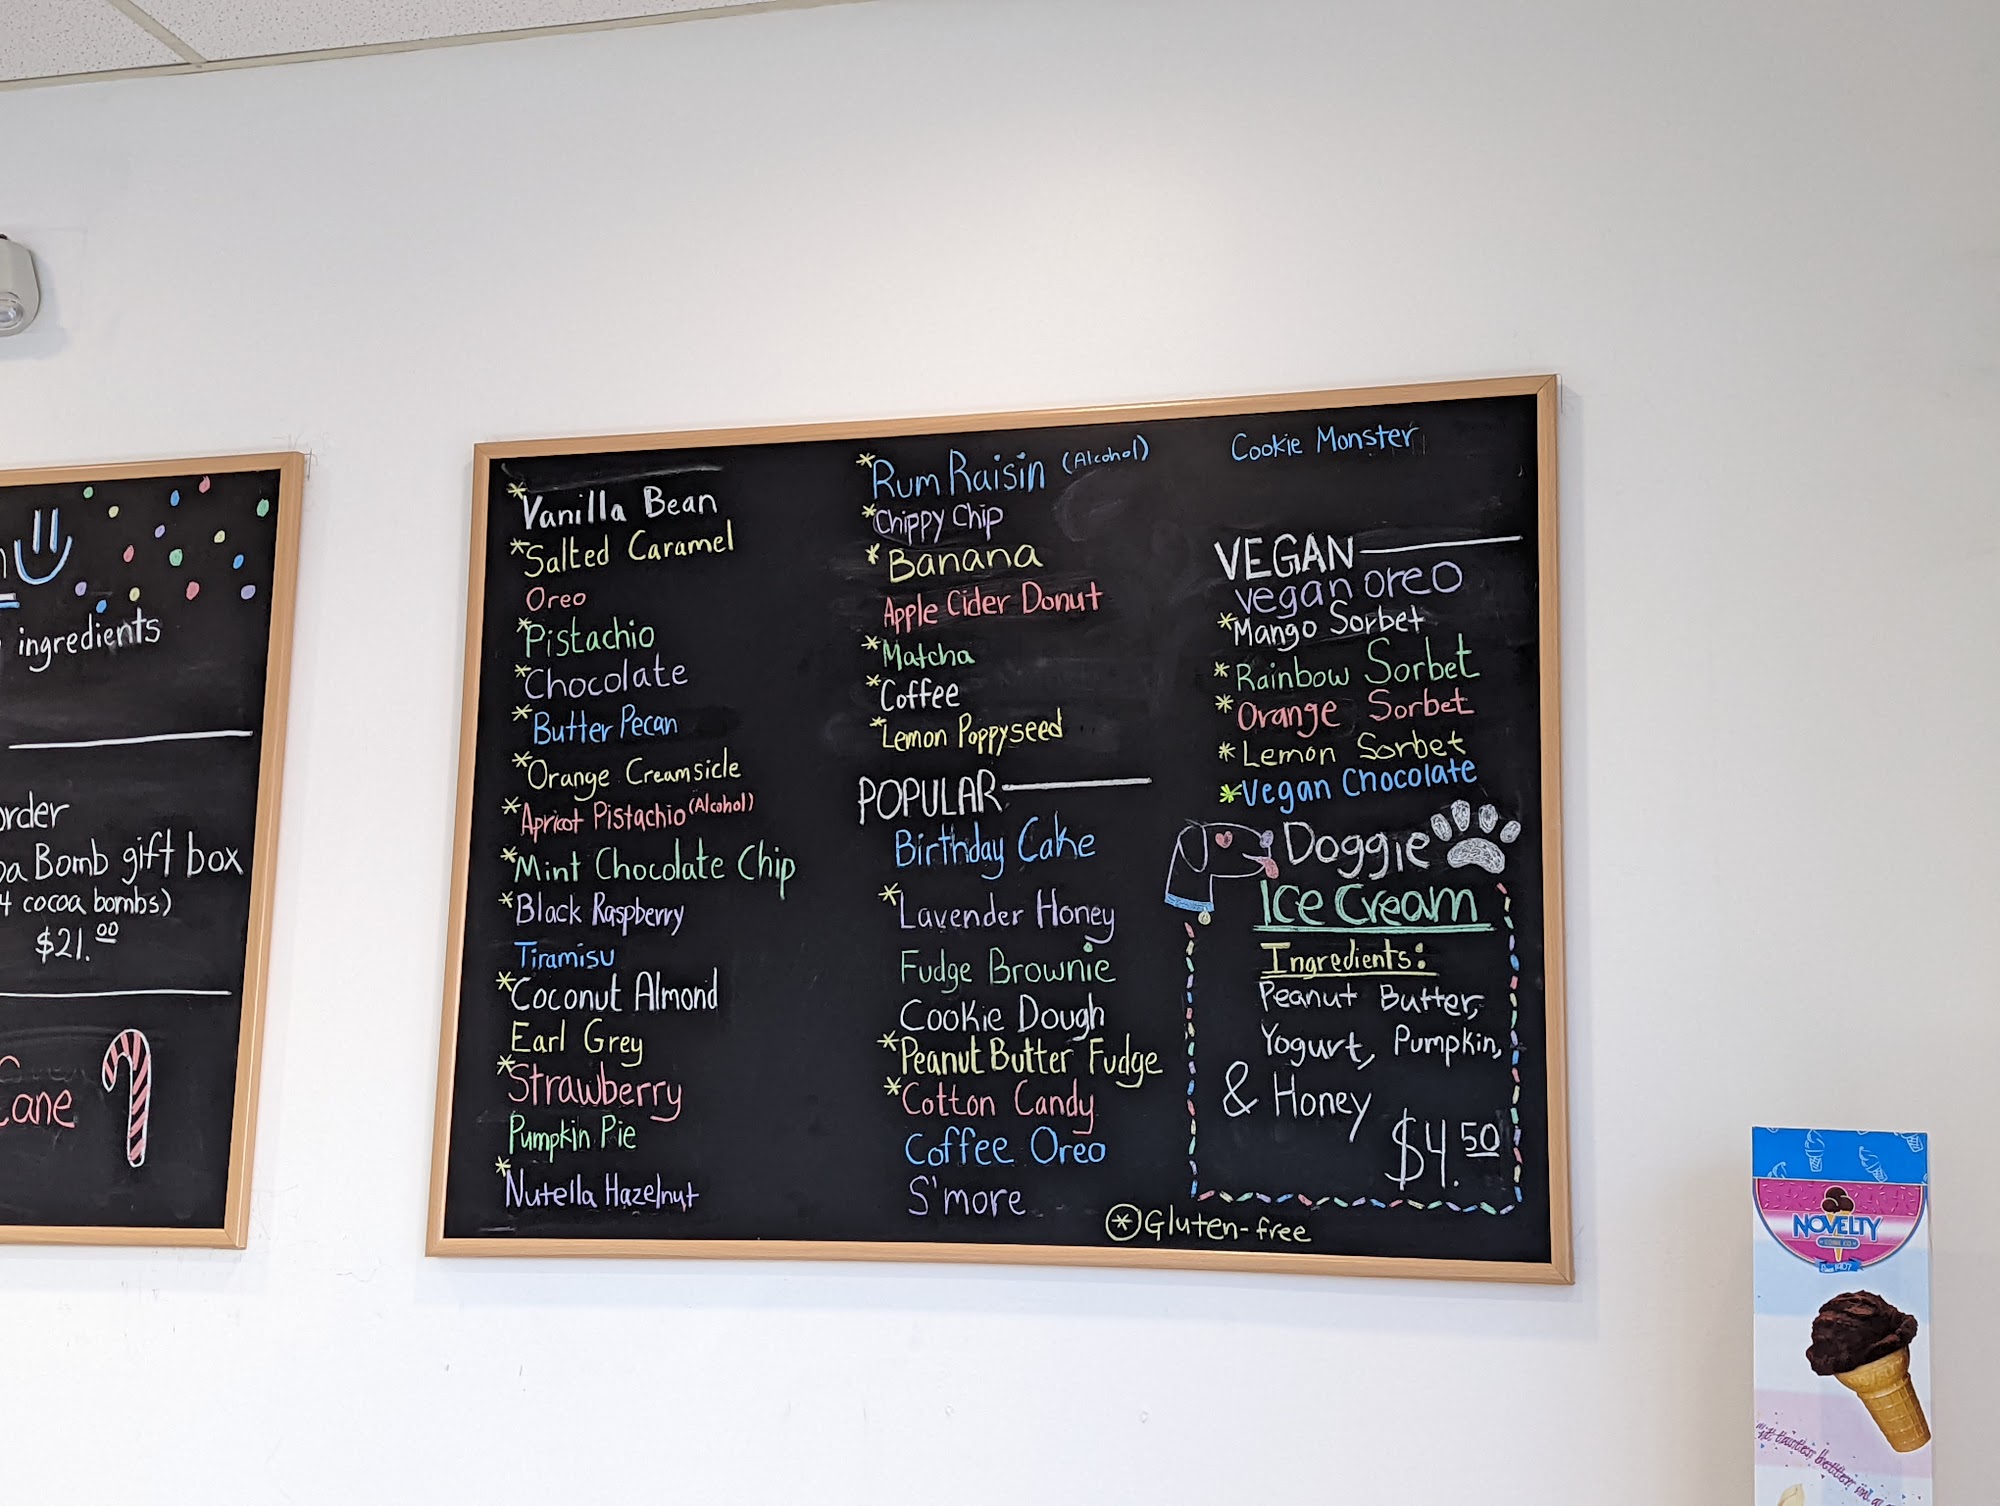 ingredients
order
Bomb gift box
4 cocoa bombs)
$21.00
Cane
*Vanilla Bean
*Salted Caramel
Oreo
*Pistachio
*Chocolate
*Butter Pecan
*Orange Creamsicle
*Apricot Pistachio (Alcohol)
*Mint Chocolate Chip
*Black Raspberry
Tiramisu
*Coconut Almond
Earl Grey
*Strawberry
Pumpkin Pie
*Nutella Hazelnut
*Rum Raisin (Alcohol)
*Chippy Chip
*Banana
Apple Cider Donut
*Matcha
*Coffee
*Lemon Poppyseed
POPULAR
Birthday Cake
*Lavender Honey
Fudge Brownie
Cookie Dough
*Peanut Butter Fudge
*Cotton Candy
Coffee Oreo
S'more
Cookie Monster
VEGAN
Vegan oreo
*Mango Sorbet
*Rainbow Sorbet
*Orange Sorbet
*Lemon Sorbet
*Vegan Chocolate
Doggie
Ice Cream
Ingredients:
Peanut Butter,
Yogurt, Pumpkin,
& Honey
$4.50
* Gluten-free
NOVELTY
CONE CO
Since 1907